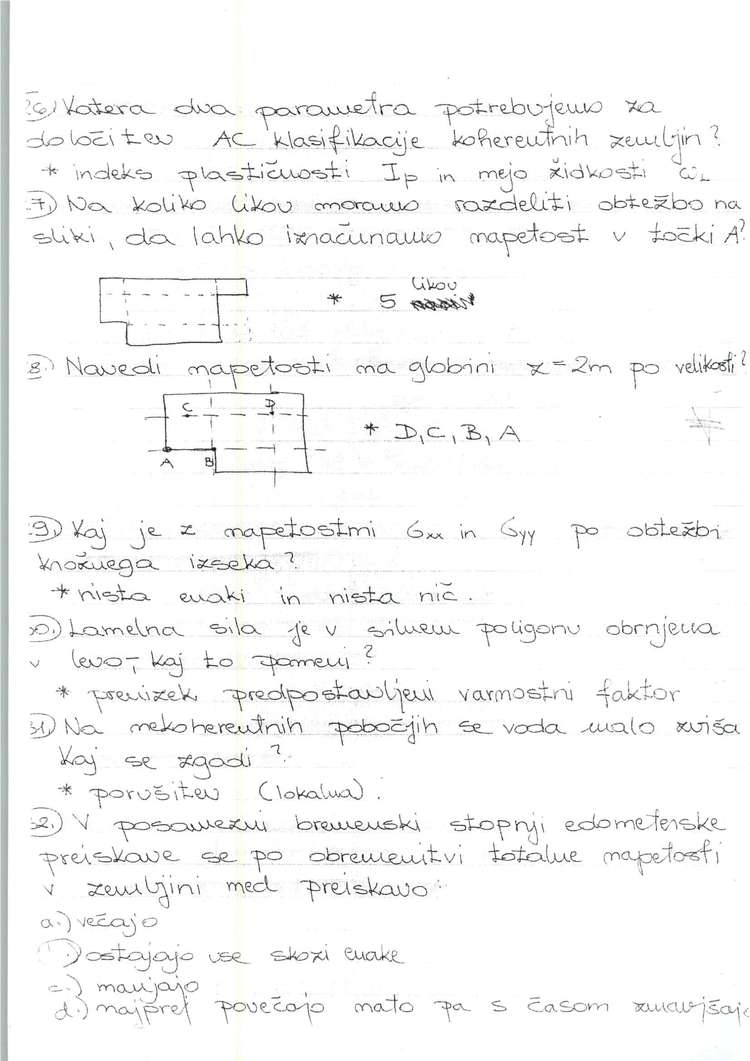 26.) Katera dva parametra potrebujemo za
določitev AC klasifikacije koherentnih zemljin?
* indeks plastičnosti Ip in mejo židkosti ωL
27.) Na koliko likov moramo razdeliti obtežbo na
sliki, da lahko izračunamo napetost v točki A?
* 5 likov
28.) Navedi napetosti na globini z=2m po velikosti?
C D
* D, C, B, A
A B
29.) Kaj je z napetostmi σxx in σyy po obtežbi
krožnega izseka?
* nista enaki in nista nič.
30.) Lamelna sila je v silnem poligonu obrnjena
v levo-, kaj to pomeni?
* prenizek predpostavljeni varnostni faktor
31.) Na nekoherentnih pobočjih se voda malo zviša
Kaj se zgodi?
* porušitev (lokalna).
32.) V posamezni bremenski stopnji edometerske
preiskave se po obremenitvi totalne napetosti
v zemljini med preiskavo:
a.) večajo
.) ostajajo vse skozi enake
c.) manjajo
d.) najprej povečajo nato pa s časom zmanjšajo